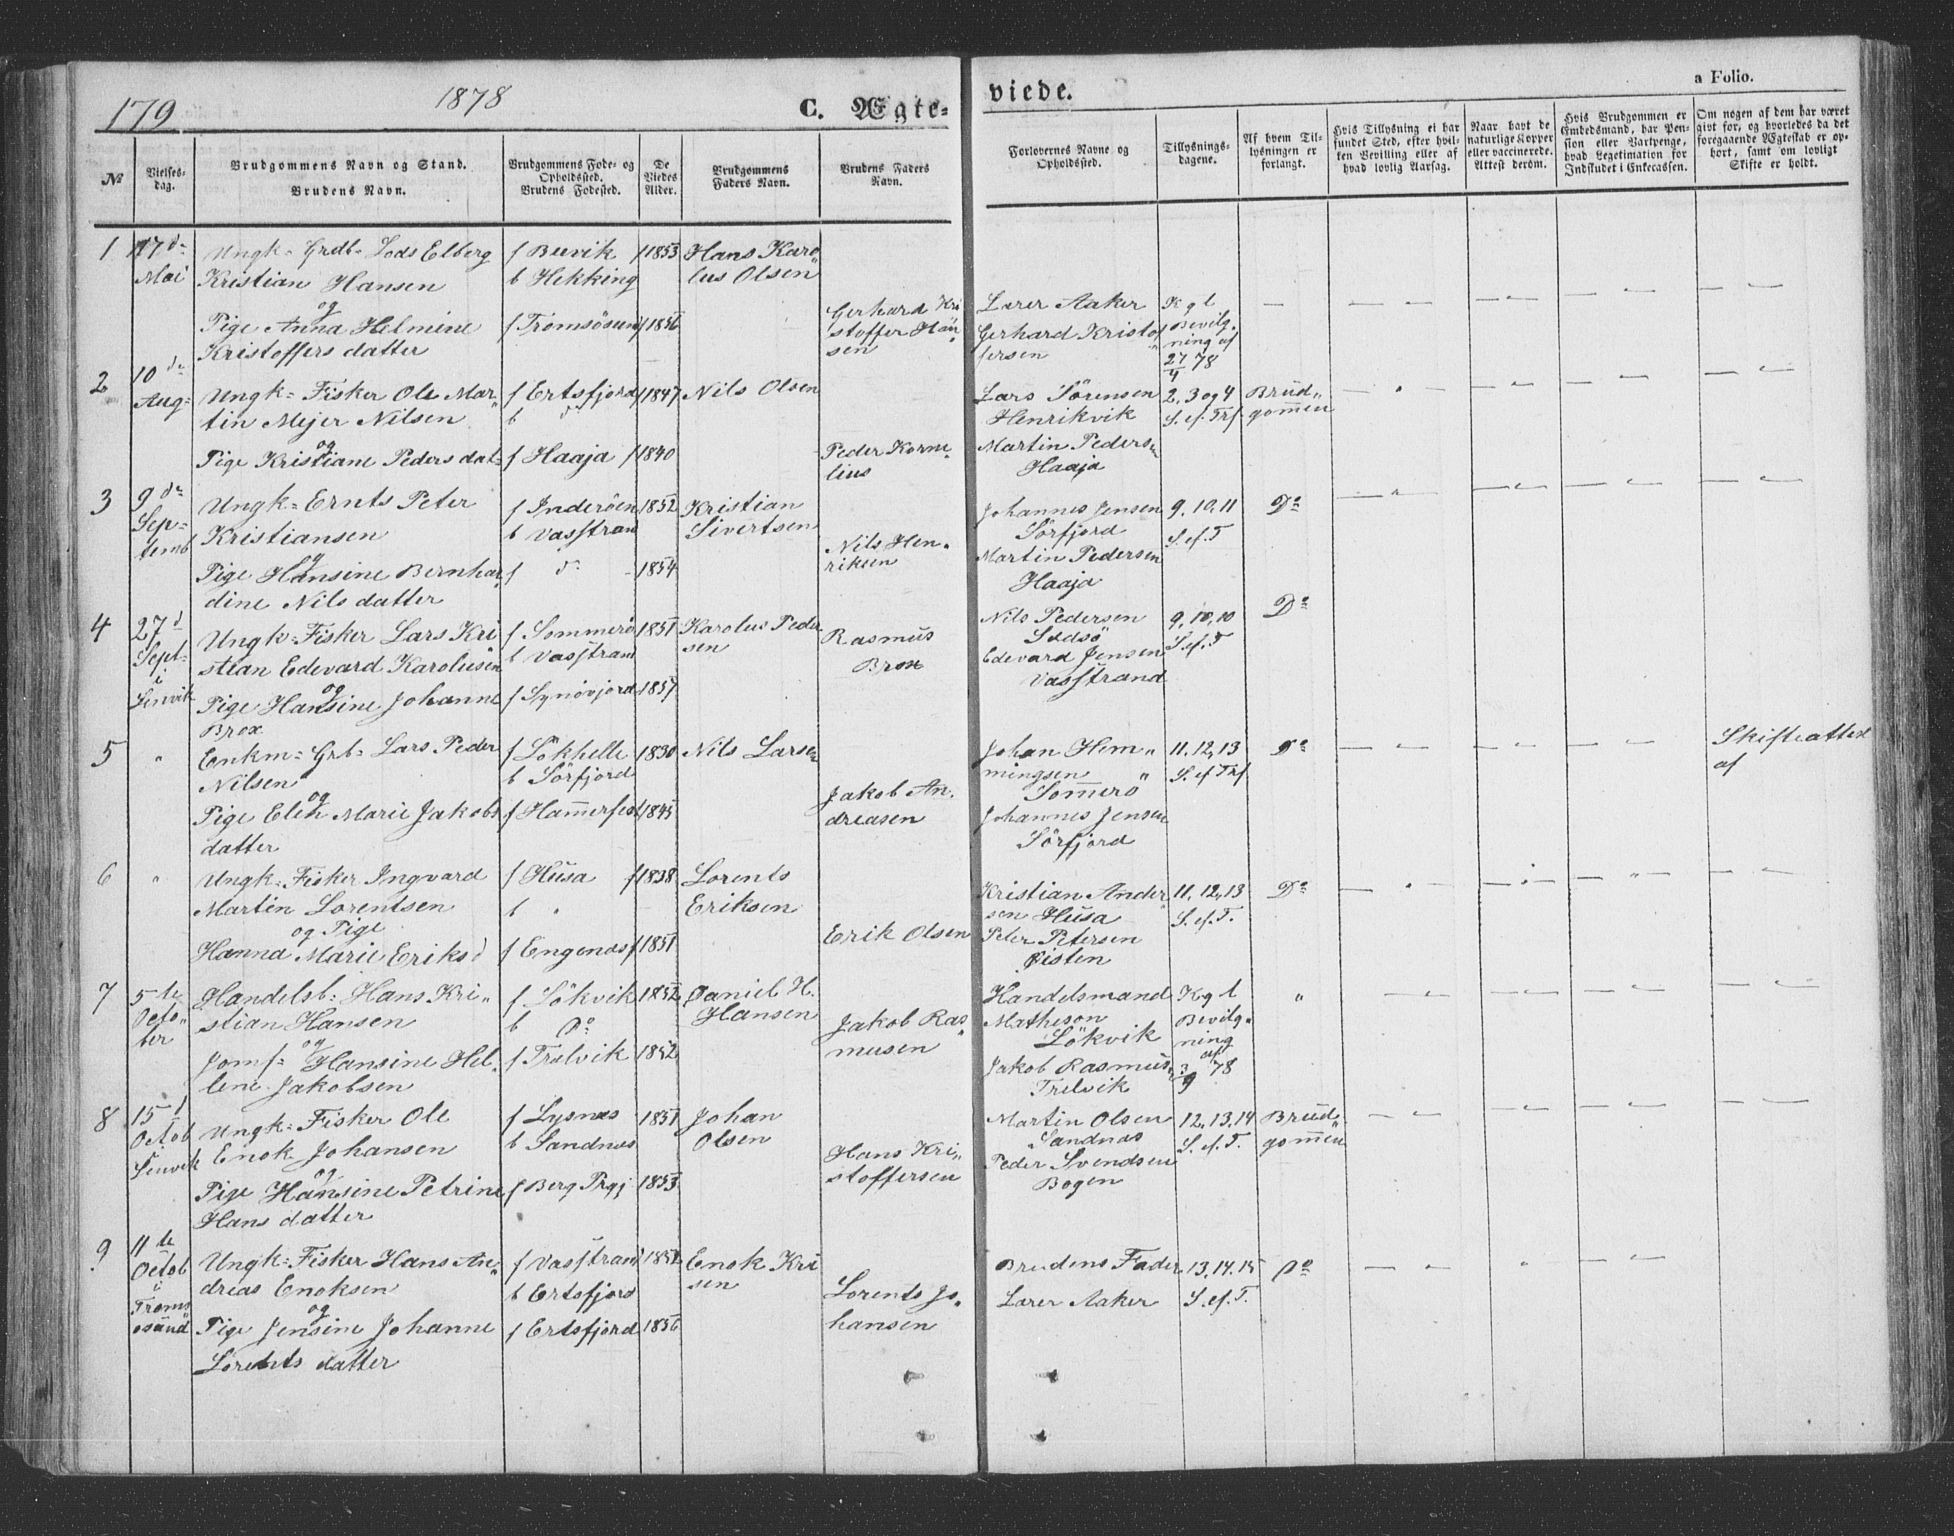 179
1878
C. Ægte-
viede.
a Folio.
№
Vielses-
dag.
Brudgommens Navn og Stand.
Brudens Navn.
Brudgommens Føde- og
Opholdssted.
Brudens Fødested.
De
Viedes
Alder.
Brudgommens
Faders Navn.
Brudens Faders
Navn.
Forlovernes Navne og
Opholdssted.
Tillysnings-
dagene.
Af hvem Til-
lysningen er
forlangt.
Hvis Tillysning ei har
fundet Sted, efter hvil-
ken Bevilling eller af
hvad lovlig Aarsag.
Naar havt de
naturlige Kopper
eller vaccinerede.
Attest derom.
Hvis Brudgommen er
Embedsmand, har Pen-
sion eller Vartpenge,
hvad Legetimation for
Indskudet i Enkecassen.
Om nogen af dem har været
gift før, og hvorledes da det
foregaaende Ægteskab er op-
hørt, samt om lovligt
Skifte er holdt.
1
17 de
Mai
Ungk= Grdb= Lods Elberg
Kristian Hansen
og
Pige Anna Helmine
Kristoffers datter
f Buvik
b Hekking
f Tromsösund
f 1853
f 1856
Hans Karo„
lus Olsen
Gerhard Kri
stoffer Han„
sen
Lærer Aaker
Gerhard Kristof
fersen
Kgl
Bevilg.
ning af
27/4 78
2
10 de
Aug=
Ungk= Fisker Ole Mar„
tin Mejer Nilsen
og
Pige Kristiane Peders dat=
f Ertsfjord
b do
f Haaja
f 1847
f 1840
Nils Olsen
Peder Korne„
lius
Lars Sörensen
Henrikvik
Martin Pedersen
Haaja
2, 3 og 4
S. ef. Trf
Brud„
gommen
3
9 de
Sep=
temb
Ungk= Ernts Peter
Kristiansen
og
Pige Hansine Bernhar„
dine Nils datter
f Inderöen
b Vasstran
f do
1852
1854
Kristian
Sivertsen
Nils Hen„
riksen
Johannes Jensen
Sörfjord
Martin Pedersen
Haaja
9, 10, 11
S. ef. T
Do
4
27 d
Sept=
i
Lenvik
Ungk= Fisker Lars Kri
stian Edevard Karolusen
og
Pige Hansine Johanne
Brox
f Sommerö
b Vasstran
f Synövjord
1851
1857
Karolus Peder
sen
Rasmus
Brox
Nils Pedersen
Edevard Jensen
Vasstrand
9, 10, 10
S. ef. T
Do
5
„
Enkm= Grb= Lars Peder
Nilsen
og
Pige Elen Marie Jakobs
datter
f Lökhelle
b Sörfjord
f Hammerfest
1830
1845
Nils Larsen
Jakob An.
dreasen
Johan Hem„
mingsen
Sommerö
Johannes Jensen
Sörfjord
11, 12, 13
S. ef Trf
Do
Skifteattest
af
6
„
Ungk= Fisker Ingvard
Martin Lorentsen
og Pige
Hanna Marie Eriks d
f Husa
b „
f Engenas
f 1838
f 1851
Lorents
Eriksen
Erik Olsen
Kristian Ander
sen Husa
Peter Petersen
Öisten
11, 12, 13
S. ef. T.
Do
7
5 te
Octo„
ber
Handelsb= Hans Kri„
stian Hansen
og
Jomf= Hansine Hel„
lene Jakobsen
f Lökvik
b Do
f Trelvik
1852
1852
Daniel H.
Hansen
Jakob Ras„
musen
Handelsmand
Matheson
Lökvik
Jakob Rasmus
Trelvik
Kgl
Bevilg„
ning
af
3/9 78
„
8
15 d
Octob
Lenvik
Ungk= Fisker Ole
Enok Johansen
og
Pige Hansine Petrine
Hans datter
f Lysnæs
b Sandnæs
f Berg Prgj
1851
1853
Johan
Olsen
Hans Kri„
stoffersen
Martin Olsen
Sandnæs
Peder Svendsen
Bogen
12, 13, 14
S. ef. T.
Brud„
gommen
9
11 te
Octob
i
Troms
ösund
Ungk= Fisker Hans An„
dreas Enoksen
og
Pige Jensine Johanne
Lorents datter
f Vasstran
b Ertsfjord
f Ertsfjord
1852
1856
Enok Kri
sen
Lorents Jo„
hansen
Brudens Fader
Lærer Aaker
13, 14, 15
S. ef. T.
Do